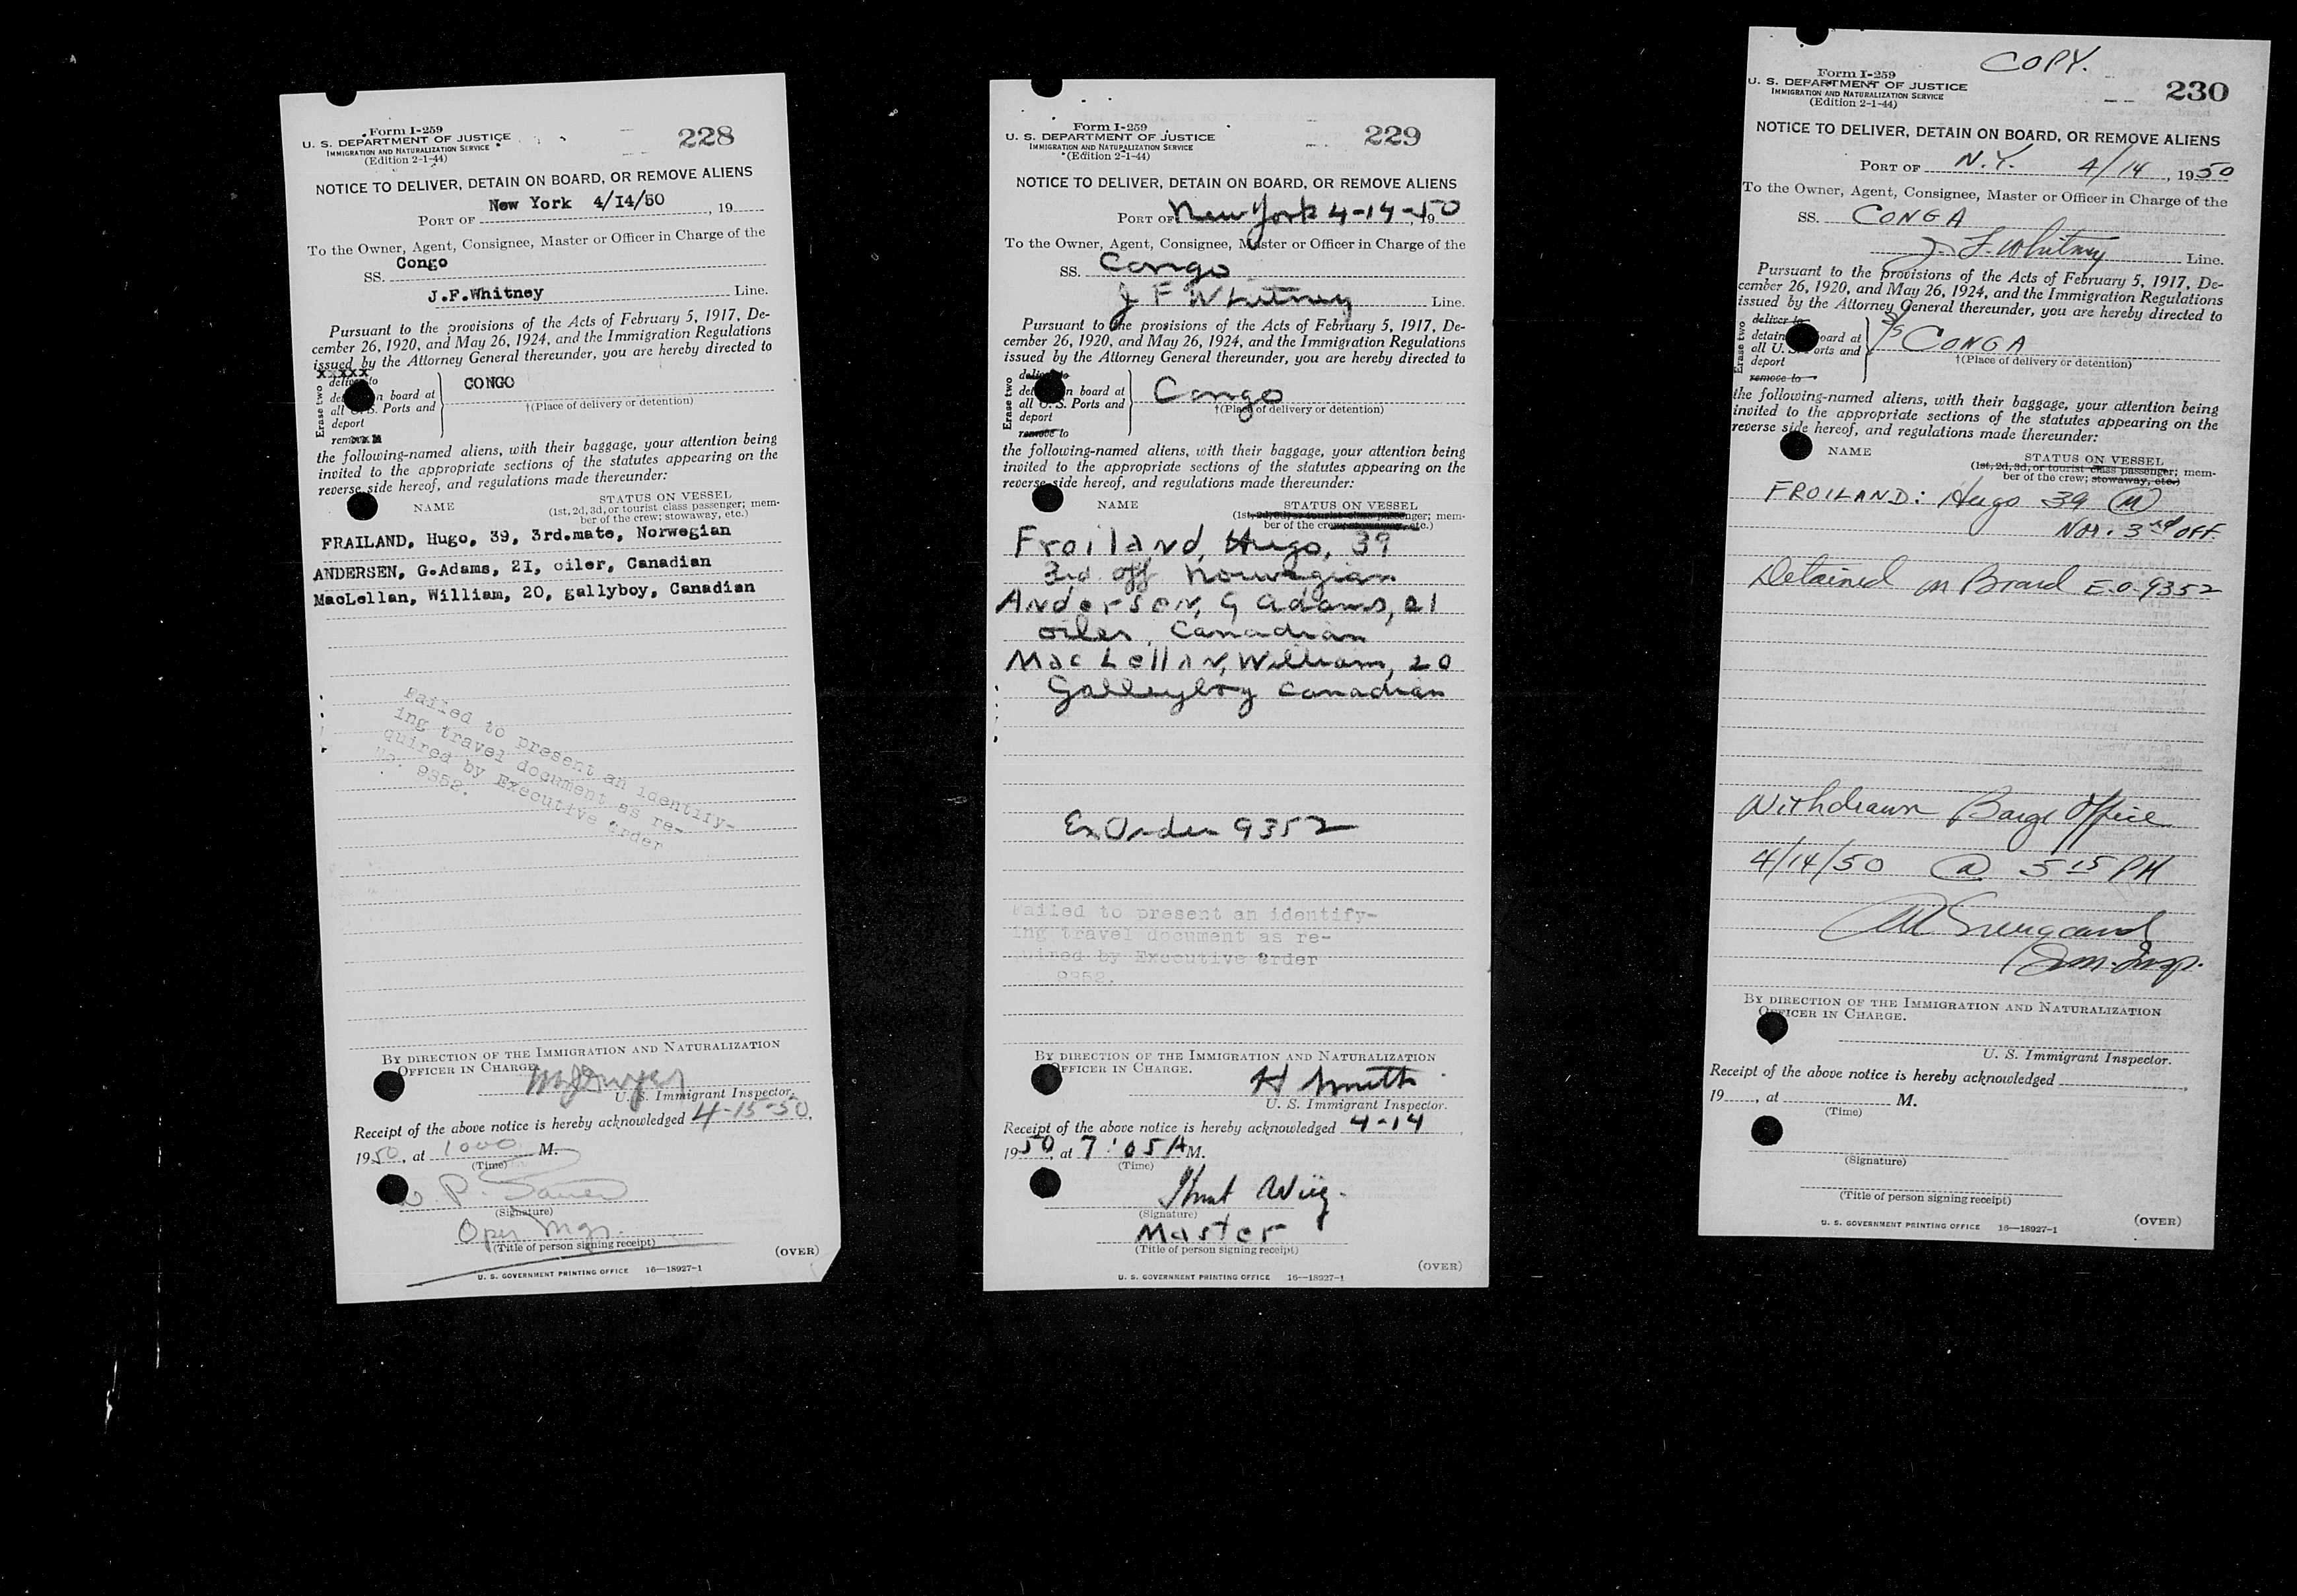 Form I-259
U. S. DEPARTMENT OF JUSTICE
IMMIGRATION AND NATURALIZATION SERVICE
(Edition 2-1-44)
228
NOTICE TO DELIVER, DETAIN ON BOARD, OR REMOVE ALIENS
New York 4/I4/50
PORT OF , 19
To the Owner, Agent, Consignee, Master or Officer in Charge of the
Congo
SS.
J.F.Whitney Line.
Pursuant to the provisions of the Acts of February 5, 1917, De-
cember 26, 1920, and May 26, 1924, and the Immigration Regulations
issued by the Attorney General thereunder, you are hereby directed to
xxxxx
Erase two
deliver to
n board at
all U. S. Ports and
deport
CONGO
†(Place of delivery or detention)
the following-named aliens, with their baggage, your attention being
invited to the appropriate sections of the statutes appearing on the
reverse side hereof, and regulations made thereunder:
NAME
STATUS ON VESSEL
(1st, 2d, 3d, or tourist class passenger; mem-
ber of the crew; stowaway, etc.)
FRAILAND, Hugo, 39, 3rd.mate, Norwegian
ANDERSEN, G.Adams, 2I, oiler, Canadian
MacLellan, William, 20, gallyboy, Canadian
Failed to present an identify-
ing travel document as re-
quired by Executive Order
No. 9352.
BY DIRECTION OF THE IMMIGRATION AND NATURALIZATION
OFFICER IN CHARGE.
U. S. Immigrant Inspector.
Receipt of the above notice is hereby acknowledged 4-15-50,
1950, at 1000 M.
(Time)
(Signature)
Oper Mgr.
(Title of person signing receipt)
(OVER)
U. S. GOVERNMENT PRINTING OFFICE 16—18927-1
Form I-259
U. S. DEPARTMENT OF JUSTICE
IMMIGRATION AND NATURALIZATION SERVICE
(Edition 2-1-44)
229
NOTICE TO DELIVER, DETAIN ON BOARD, OR REMOVE ALIENS
PORT OF New York 4-14-1950
To the Owner, Agent, Consignee, Master or Officer in Charge of the
SS. Congo
J F Whitney Line.
Pursuant to the provisions of the Acts of February 5, 1917, De-
cember 26, 1920, and May 26, 1924, and the Immigration Regulations
issued by the Attorney General thereunder, you are hereby directed to
Erase two
deliver to
n board at
all U. S. Ports and
deport
remove to
Congo
†(Place of delivery or detention)
the following-named aliens, with their baggage, your attention being
invited to the appropriate sections of the statutes appearing on the
reverse side hereof, and regulations made thereunder:
NAME
STATUS ON VESSEL
(1st, 2d, 3d, or tourist class passenger; mem-
ber of the crew; stowaway, etc.)
Froiland, Hugo, 39
3rd off Norwegian
Anderson, G Adams, 21
oiler, Canadian
Mac Lellan, William, 20
Galleyboy Canadian
Ex Order 9352
Failed to present an identify-
ing travel document as re-
quired by Executive Order
9352.
BY DIRECTION OF THE IMMIGRATION AND NATURALIZATION
OFFICER IN CHARGE.
H Smith
U. S. Immigrant Inspector.
Receipt of the above notice is hereby acknowledged 4-14,
1950, at 7:05 A M.
(Time)
(Signature)
Master
(Title of person signing receipt)
(OVER)
U. S. GOVERNMENT PRINTING OFFICE 16—18927-1
COPY.
Form I-259
U. S. DEPARTMENT OF JUSTICE
IMMIGRATION AND NATURALIZATION SERVICE
(Edition 2-1-44)
230
NOTICE TO DELIVER, DETAIN ON BOARD, OR REMOVE ALIENS
PORT OF N.Y. 4/14, 1950
To the Owner, Agent, Consignee, Master or Officer in Charge of the
SS. CONGA
J. F. Whitney Line.
Pursuant to the provisions of the Acts of February 5, 1917, De-
cember 26, 1920, and May 26, 1924, and the Immigration Regulations
issued by the Attorney General thereunder, you are hereby directed to
Erase two
deliver to
detain board at
all U. S. Ports and
deport
remove to
S/S CONGA
†(Place of delivery or detention)
the following-named aliens, with their baggage, your attention being
invited to the appropriate sections of the statutes appearing on the
reverse side hereof, and regulations made thereunder:
NAME
STATUS ON VESSEL
(1st, 2d, 3d, or tourist class passenger; mem-
ber of the crew; stowaway, etc.)
FROILAND: Hugo 39 (M)
Nor. 3rd Off.
Detained on Board E.O. 9352
Withdrawn Barge Office
4/14/50 @ 5 15 PM
Imm. Insp.
BY DIRECTION OF THE IMMIGRATION AND NATURALIZATION
OFFICER IN CHARGE.
U. S. Immigrant Inspector.
Receipt of the above notice is hereby acknowledged ,
19 , at M.
(Time)
(Signature)
(Title of person signing receipt)
(OVER)
U. S. GOVERNMENT PRINTING OFFICE 16—18927-1